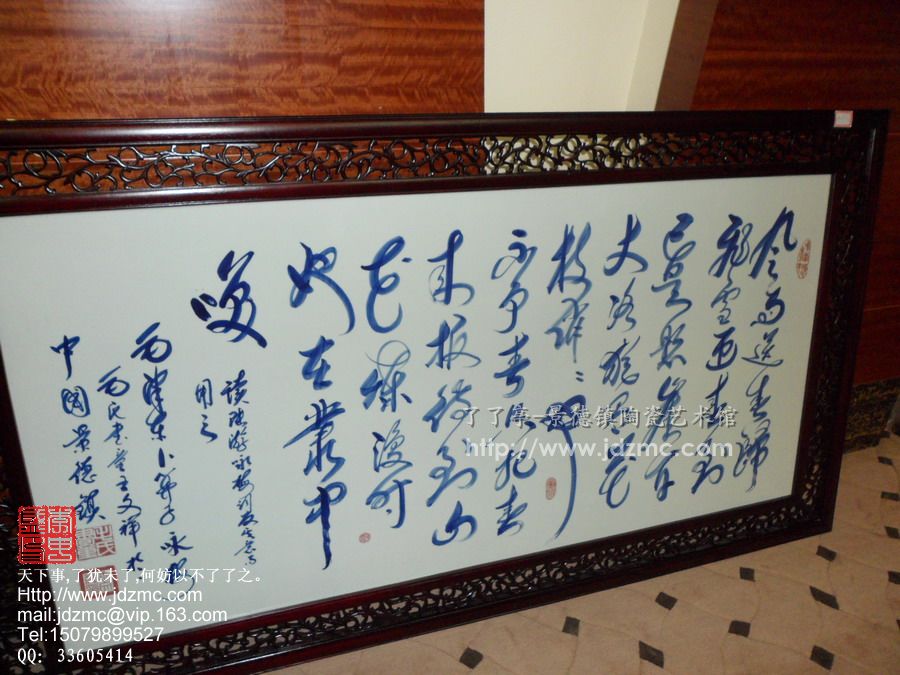 風雨送春歸
飛雪迎春到
已是懸崖百
丈冰猶有花
枝俏〻也
不争春只把春
来报待到山
花爛漫时
她在叢中
咲
读陆游咏梅词反其意而
用之
毛泽东卜算子咏梅
中國景德鎮
了了亭-景德镇陶瓷艺术馆
http://www.jdzmc.com
天下事,了犹未了,何妨以不了了之。
Http://www.jdzmc.com
mail:jdzmc@vip.163.com
Tel:15079899527
QQ: 33605414